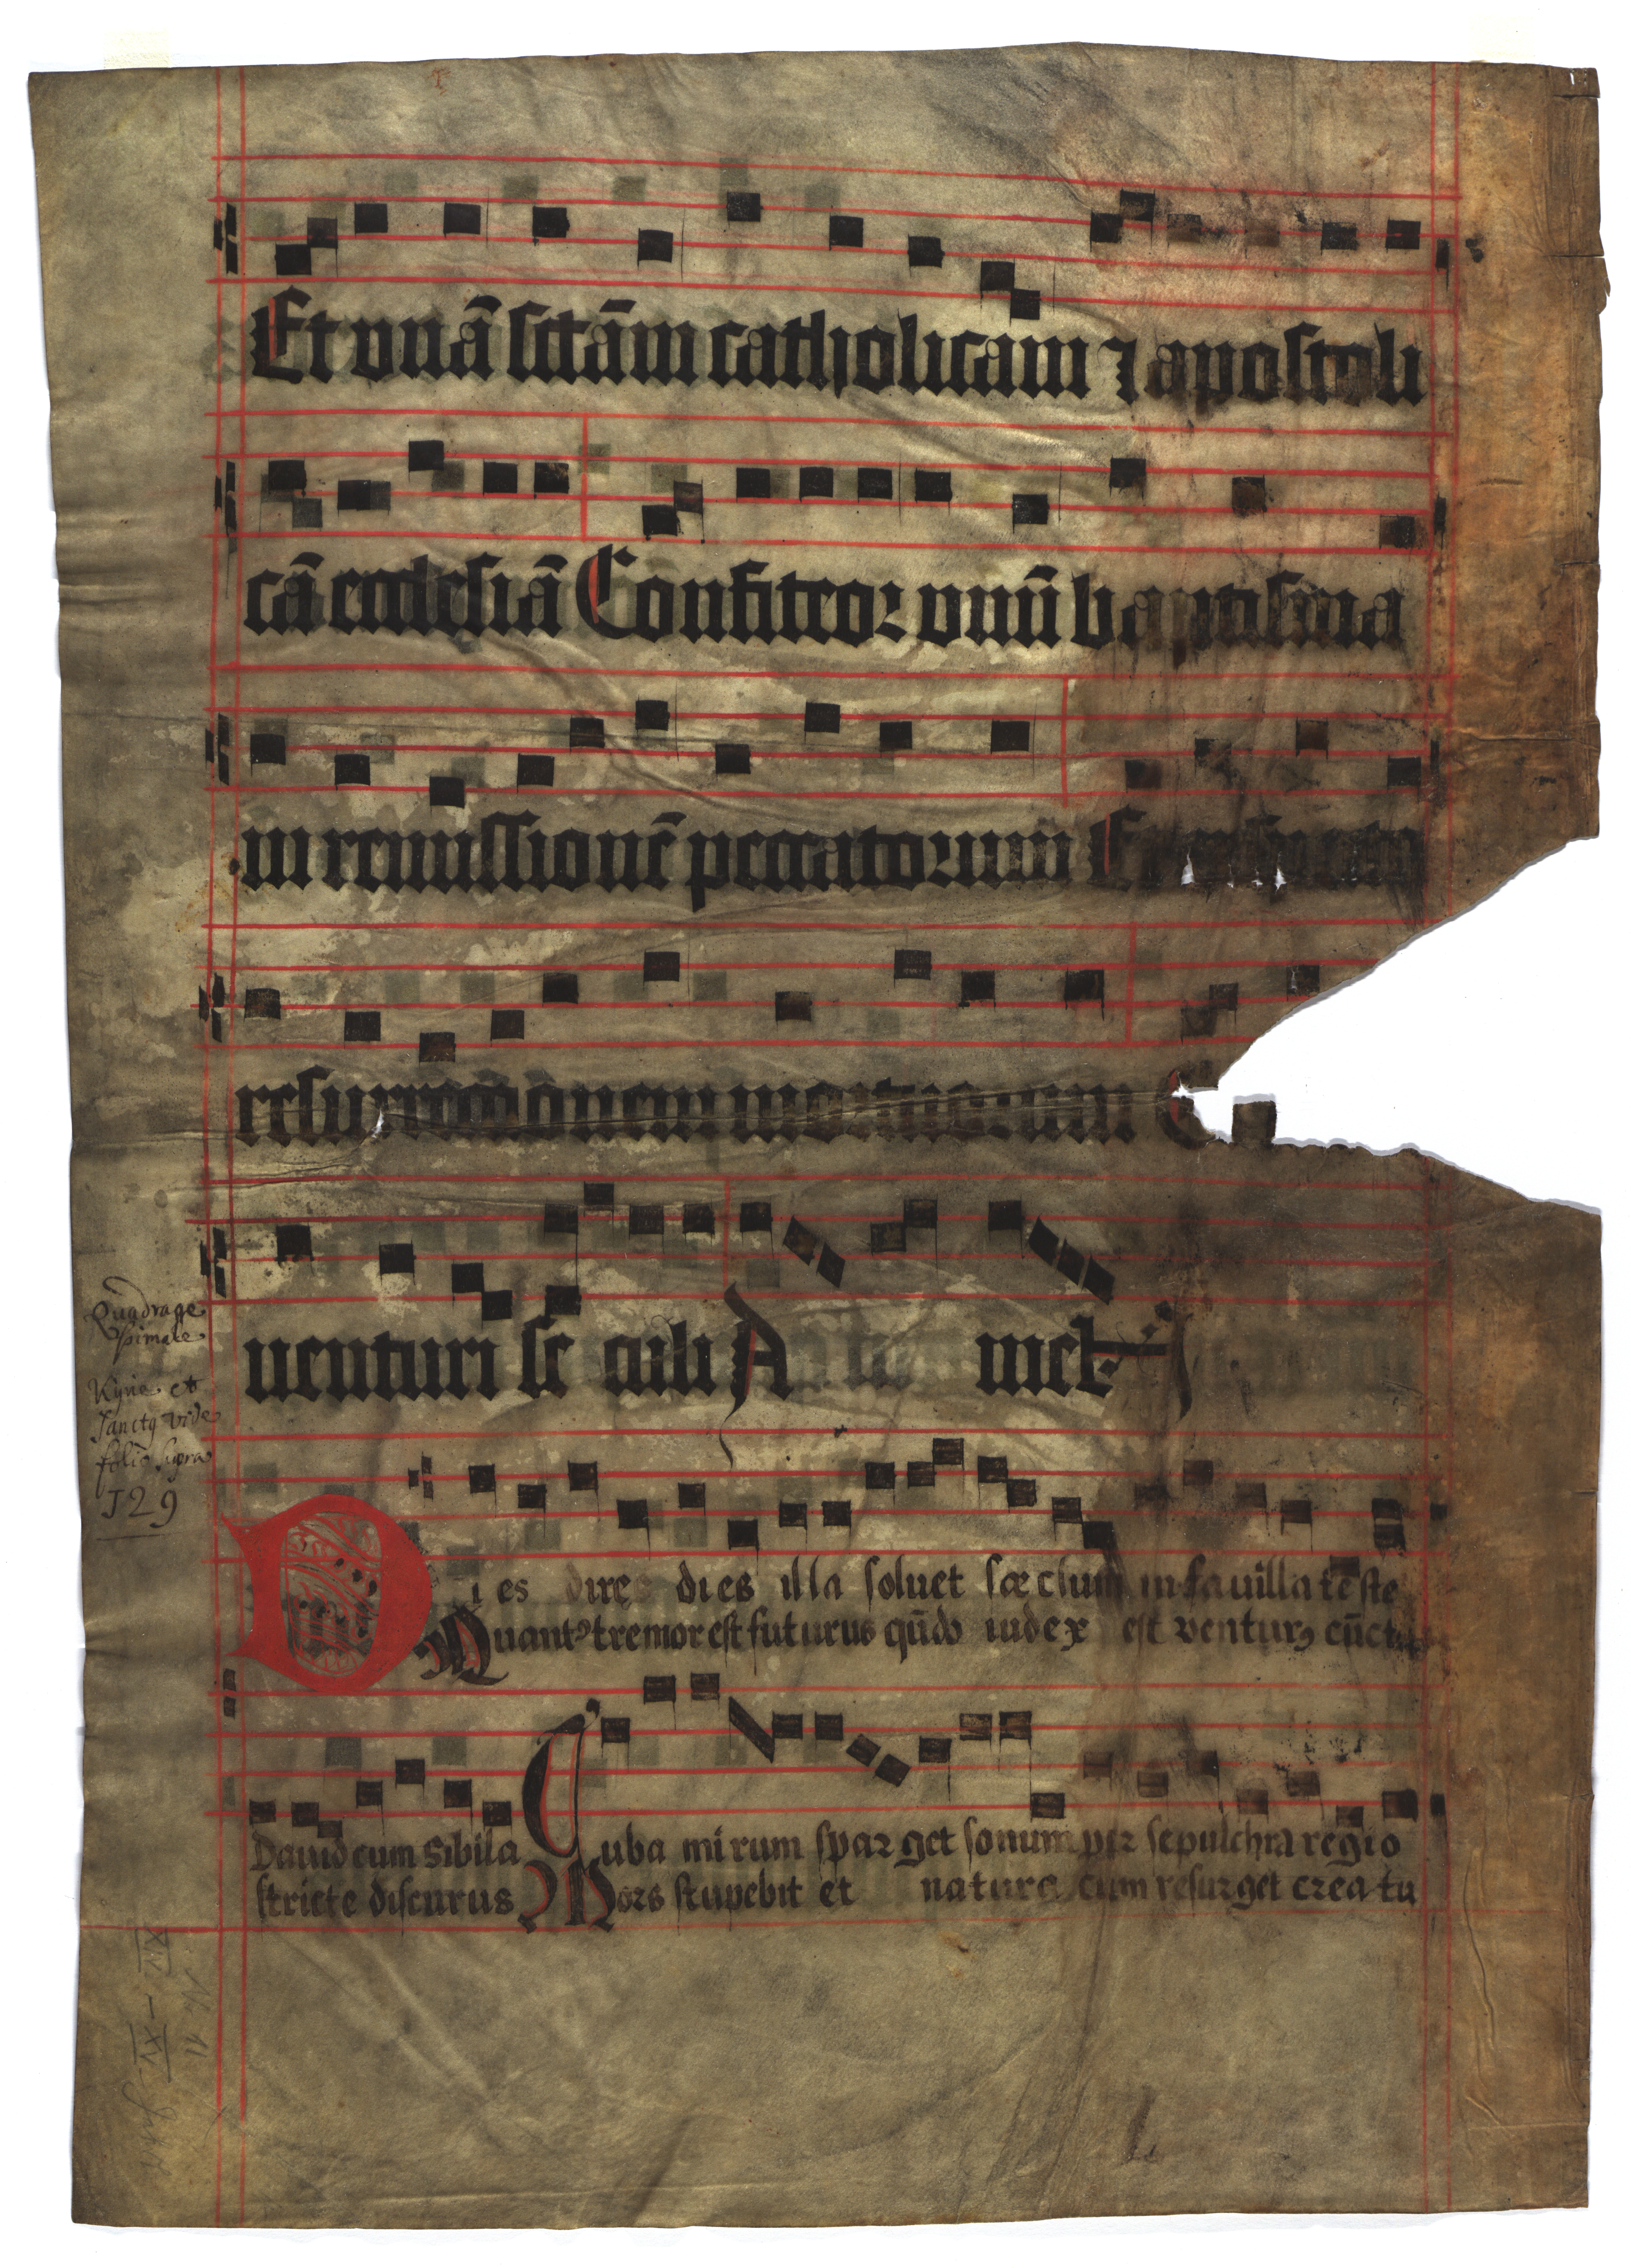 Et vnā sctām catholicam ⁊ apostoli
cā ecclesiā Confiteor vnū baptisma
in remissionē peccatorum Et expecto
resurrectionem mortuorum E
uenturi se culi A men
Quadrage
simale
Kyrie et
Sanctꝯ vide
folio supra
129
Dies dirę dies illa soluet sæclum in fauilla teste
Quantꝰ tremor est futurus qūdo iudex est venturꝯ cūcta
Dauid cum Sibila Tuba mirum sparget sonum per sepulchra regio
stricte discurus Mors stupebit et natura cum resurget creatu
N. 11
XIV – XV Jahrh